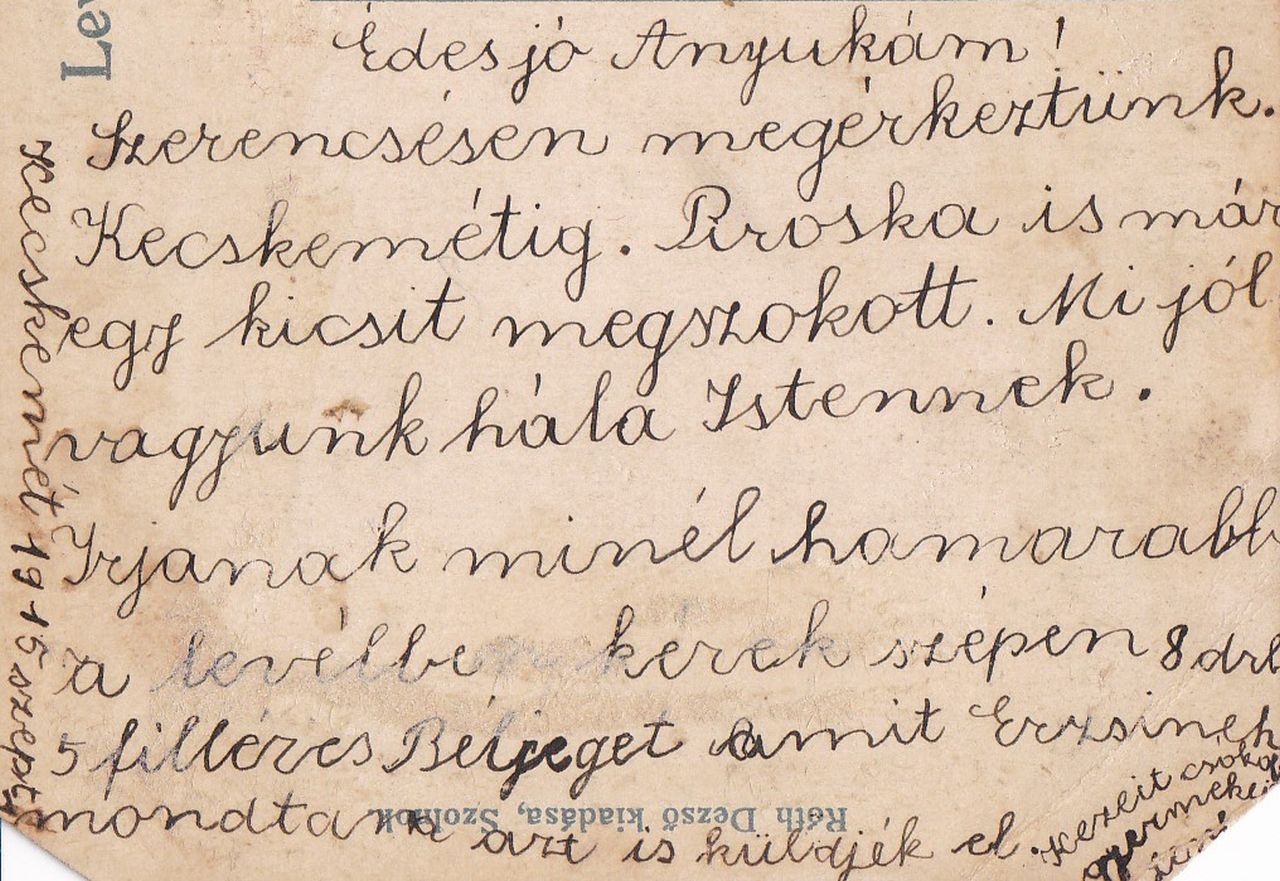 Lev
Édes jó Anyukám!
Szerencsésen megérkeztünk.
Kecskemétig. Piroska is már
egy kicsit megszokott. Mi jól
vagyunk hála Istennek.
Irjanak minél hamarabb
a levélbe kérek szépen 8 drb
5 filléres Béljeget amit Erzsinek
mondtam azt is küldjék el.
Kezeit csókol
gyermekei
Kecskemét 1915 szept
Róth Dezső kiadása, Szolnok